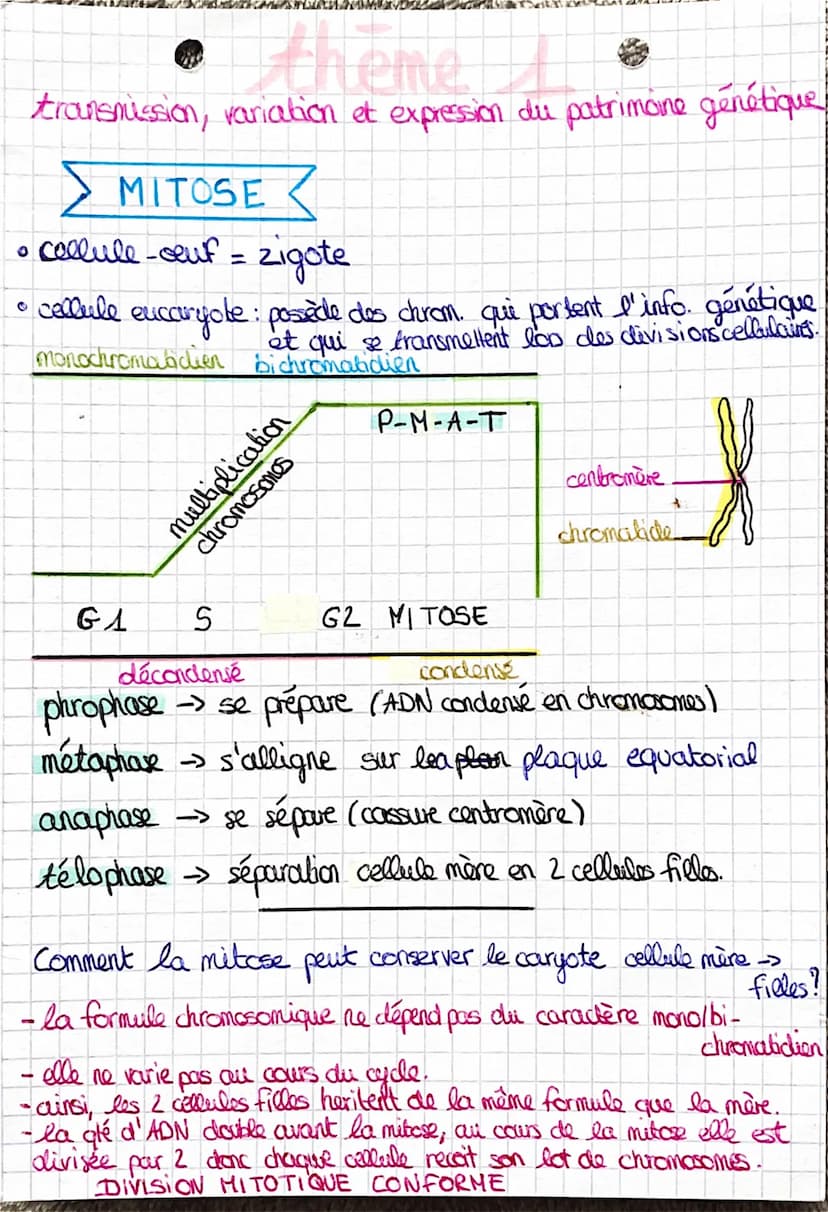 thème 1
transmission, variation et expression du patrimoine génétique
MITOSE
• cellule-oeuf = zigote
• cellule eucaryote : possède des chrom. qui portent l'info. génétique
et qui se transmettent lors des divisions cellulaires.
monochromatidien bichromatidien
P-M-A-T
multiplication
chromosomes
centromère
chromatide
G1 S G2 MITOSE
décondensé condensé
phrophase -> se prépare (ADN condensé en chromosomes)
métaphase -> s'alligne sur la plan plaque equatorial
anaphase -> se sépare (cassure centromère)
télophase -> séparation cellule mère en 2 cellules filles.
Comment la mitose peut conserver le caryote cellule mère ->
filles?
- la formule chromosomique ne dépend pas du caractère mono/bi-
chromatidien
- elle ne varie pas au cours du cycle.
- ainsi, les 2 cellules filles héritent de la même formule que la mère.
- la qté d'ADN double avant la mitose, au cours de la mitose elle est
divisée par 2 donc chaque cellule recoit son lot de chromosomes.
DIVISION MITOTIQUE CONFORME